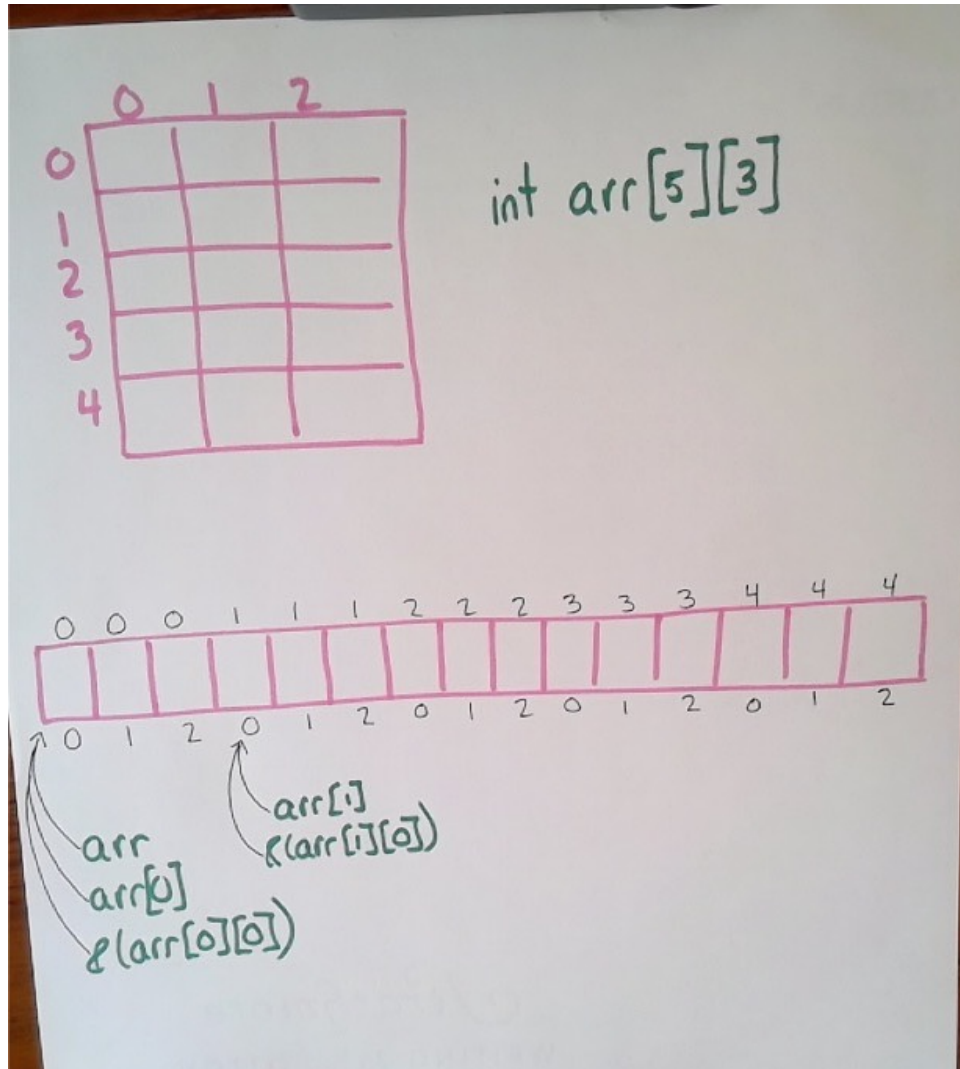 0 1 2
0
1
2
3
4
int arr[5][3]
0 0 0 1 1 1 2 2 2 3 3 3 4 4 4
0 1 2 0 1 2 0 1 2 0 1 2 0 1 2
arr
arr[0]
&(arr[0][0])
arr[1]
&(arr[1][0])